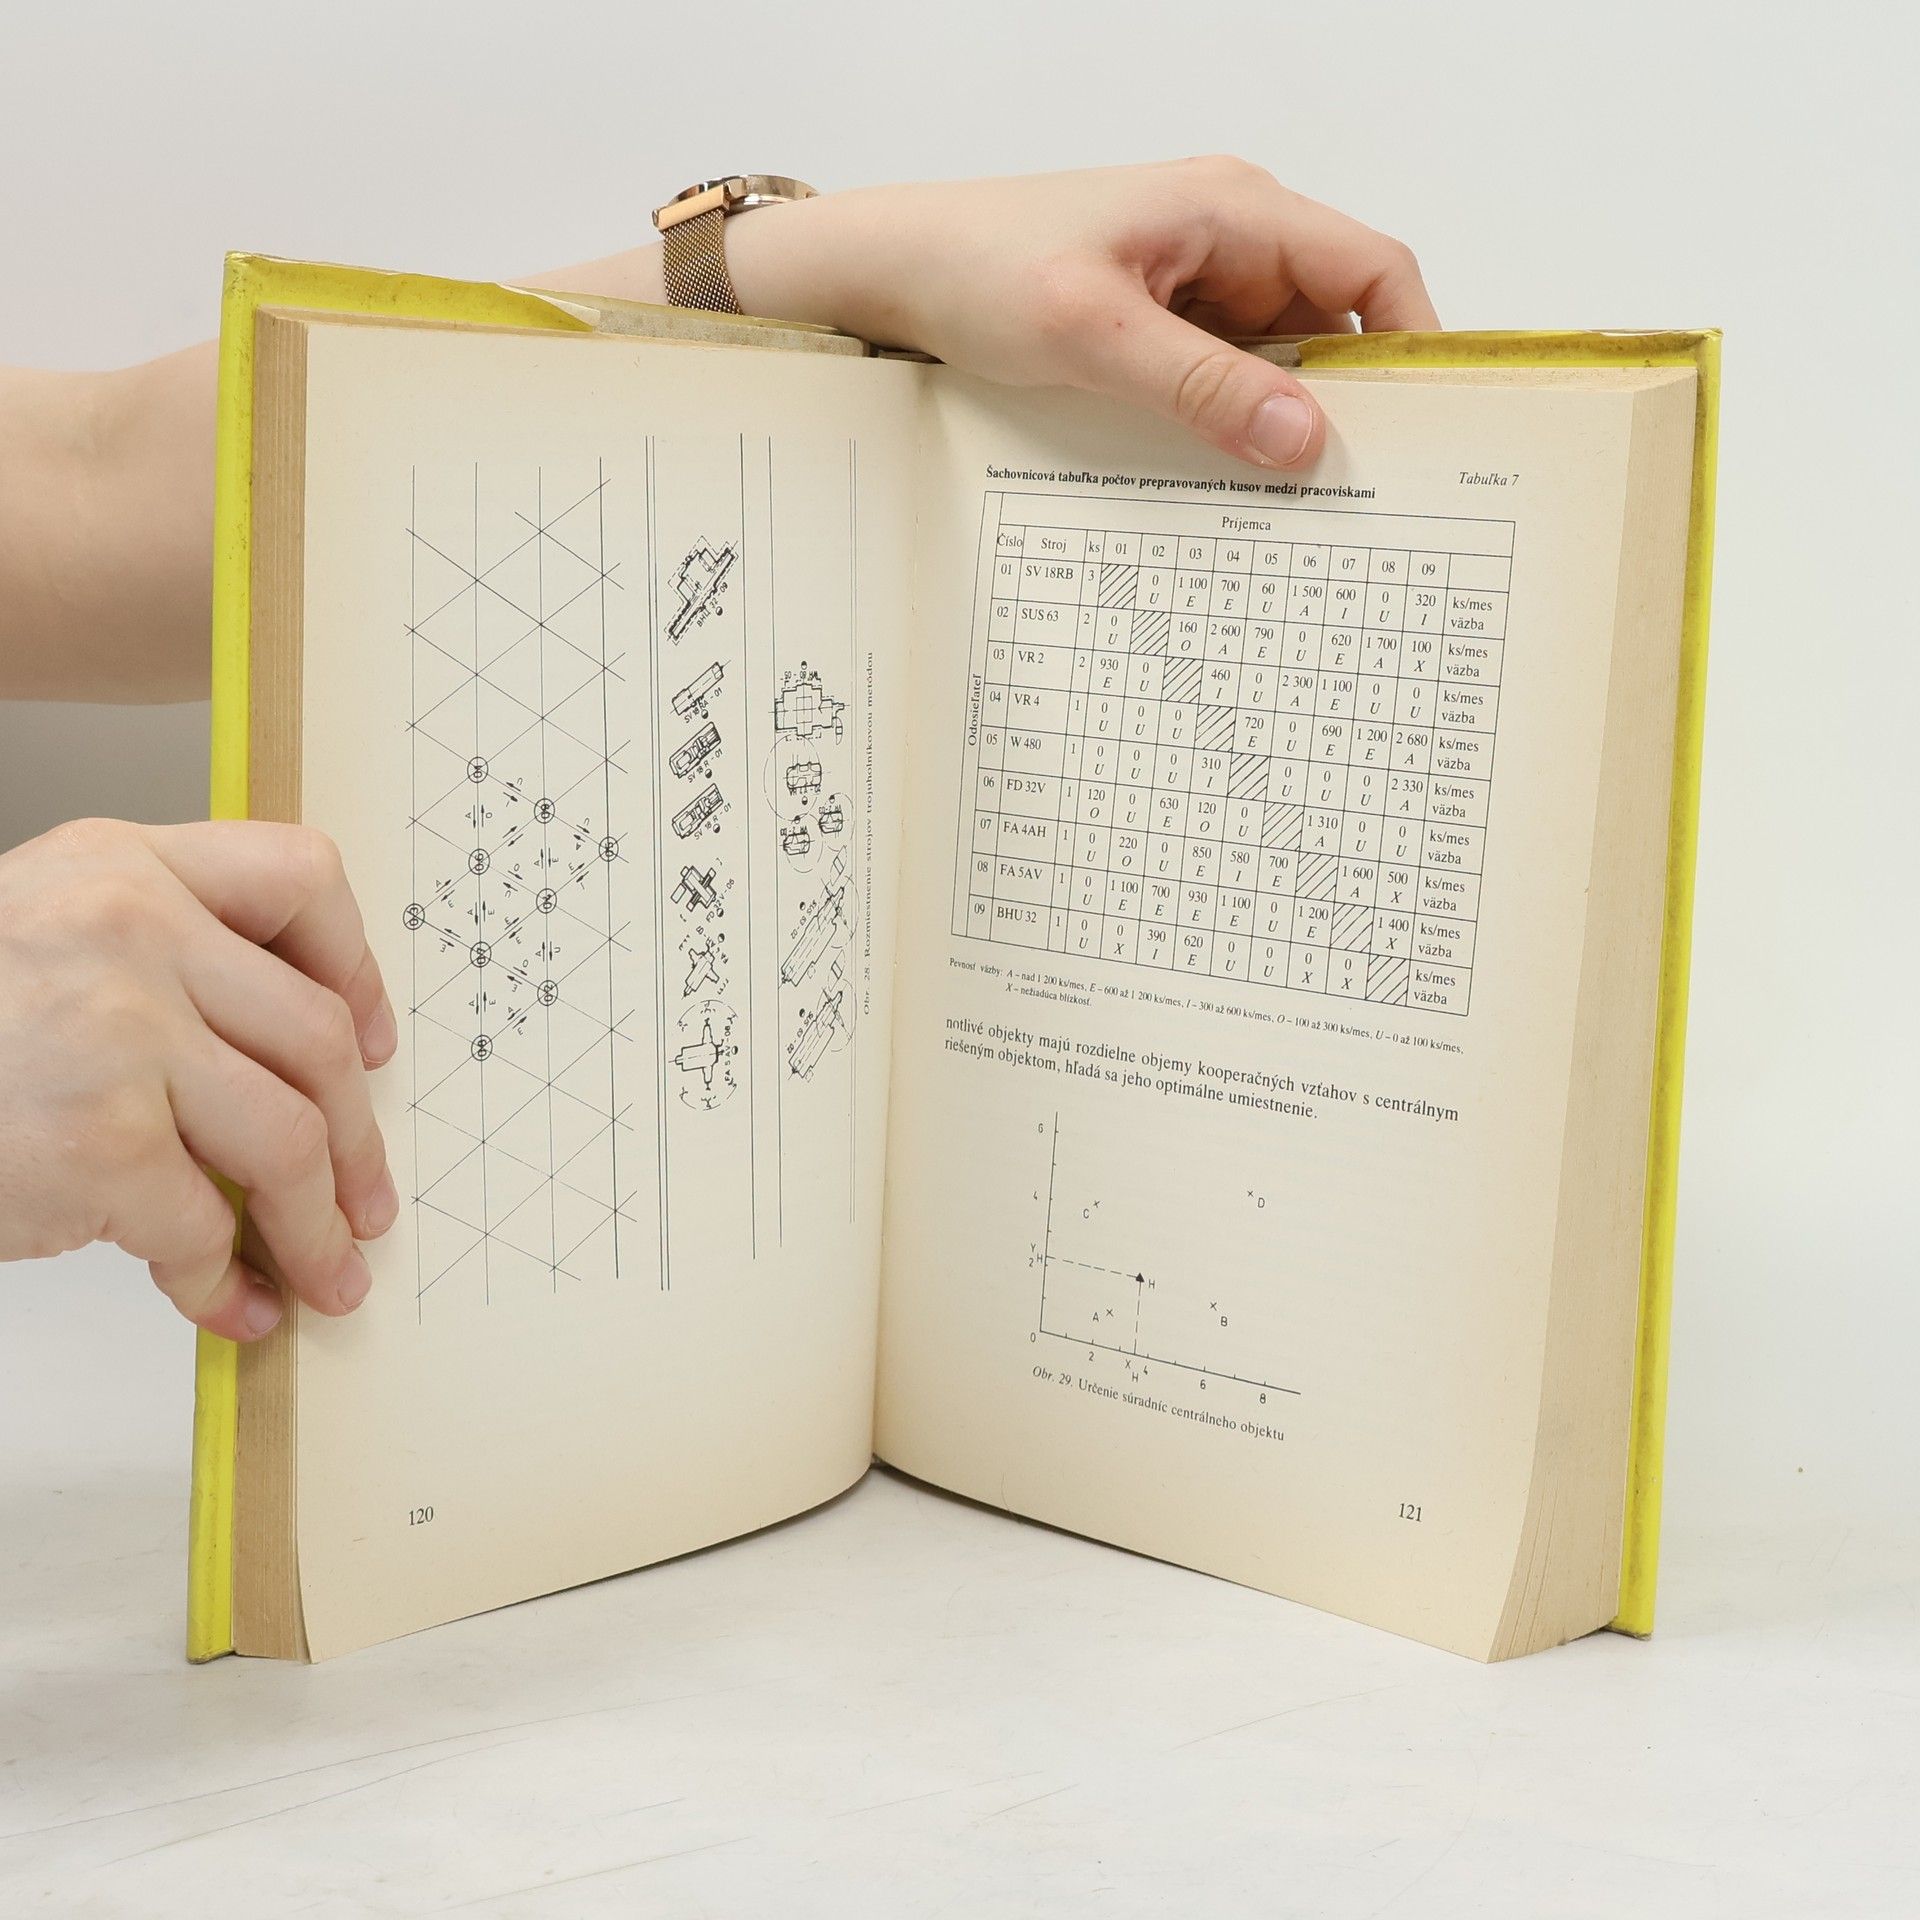 BHU 32 - 09
SV 18 RA - 01
SV 18 R - 01
SV 18 R - 01
FD 32V - 06
FA 5 AV - 08
Obr. 28. Rozmiestnenie strojov trojuholníkovou metódou
120
Tabuľka 7
Šachovnicová tabuľka počtov prepravovaných kusov medzi pracoviskami
Príjemca
Číslo Stroj ks 01 02 03 04 05 06 07 08 09
Odosieľateľ
01 SV 18RB 3 0 1 100 700 60 1 500 600 0 320 ks/mes
U E E U A I U I väzba
02 SUS 63 2 0 160 2 600 790 0 620 1 700 100 ks/mes
U O A E U E A X väzba
03 VR 2 2 930 0 460 0 2 300 1 100 0 0 ks/mes
E U I U A E U U väzba
04 VR 4 1 0 0 0 720 0 690 1 200 2 680 ks/mes
U U U E U E E A väzba
05 W 480 1 0 0 0 310 0 0 0 2 330 ks/mes
U U U I U U U A väzba
06 FD 32V 1 120 0 630 120 0 1 310 0 0 ks/mes
O U E O U A U U väzba
07 FA 4AH 1 0 220 0 850 580 700 1 600 500 ks/mes
U O U E I E A X väzba
08 FA 5AV 1 0 1 100 700 930 1 100 0 1 200 1 400 ks/mes
U E E E E U E X väzba
09 BHU 32 1 0 0 390 620 0 0 0 0 ks/mes
U X I E U U X X väzba
Pevnosť väzby: A – nad 1 200 ks/mes, E – 600 až 1 200 ks/mes, I – 300 až 600 ks/mes, O – 100 až 300 ks/mes, U – 0 až 100 ks/mes,
X – nežiadúca blízkosť.
notlivé objekty majú rozdielne objemy kooperačných vzťahov s centrálnym
riešeným objektom, hľadá sa jeho optimálne umiestnenie.
6
4
C
D
Y
H
2
H
A
B
0
2
X
H
4
6
8
Obr. 29. Určenie súradníc centrálneho objektu
121